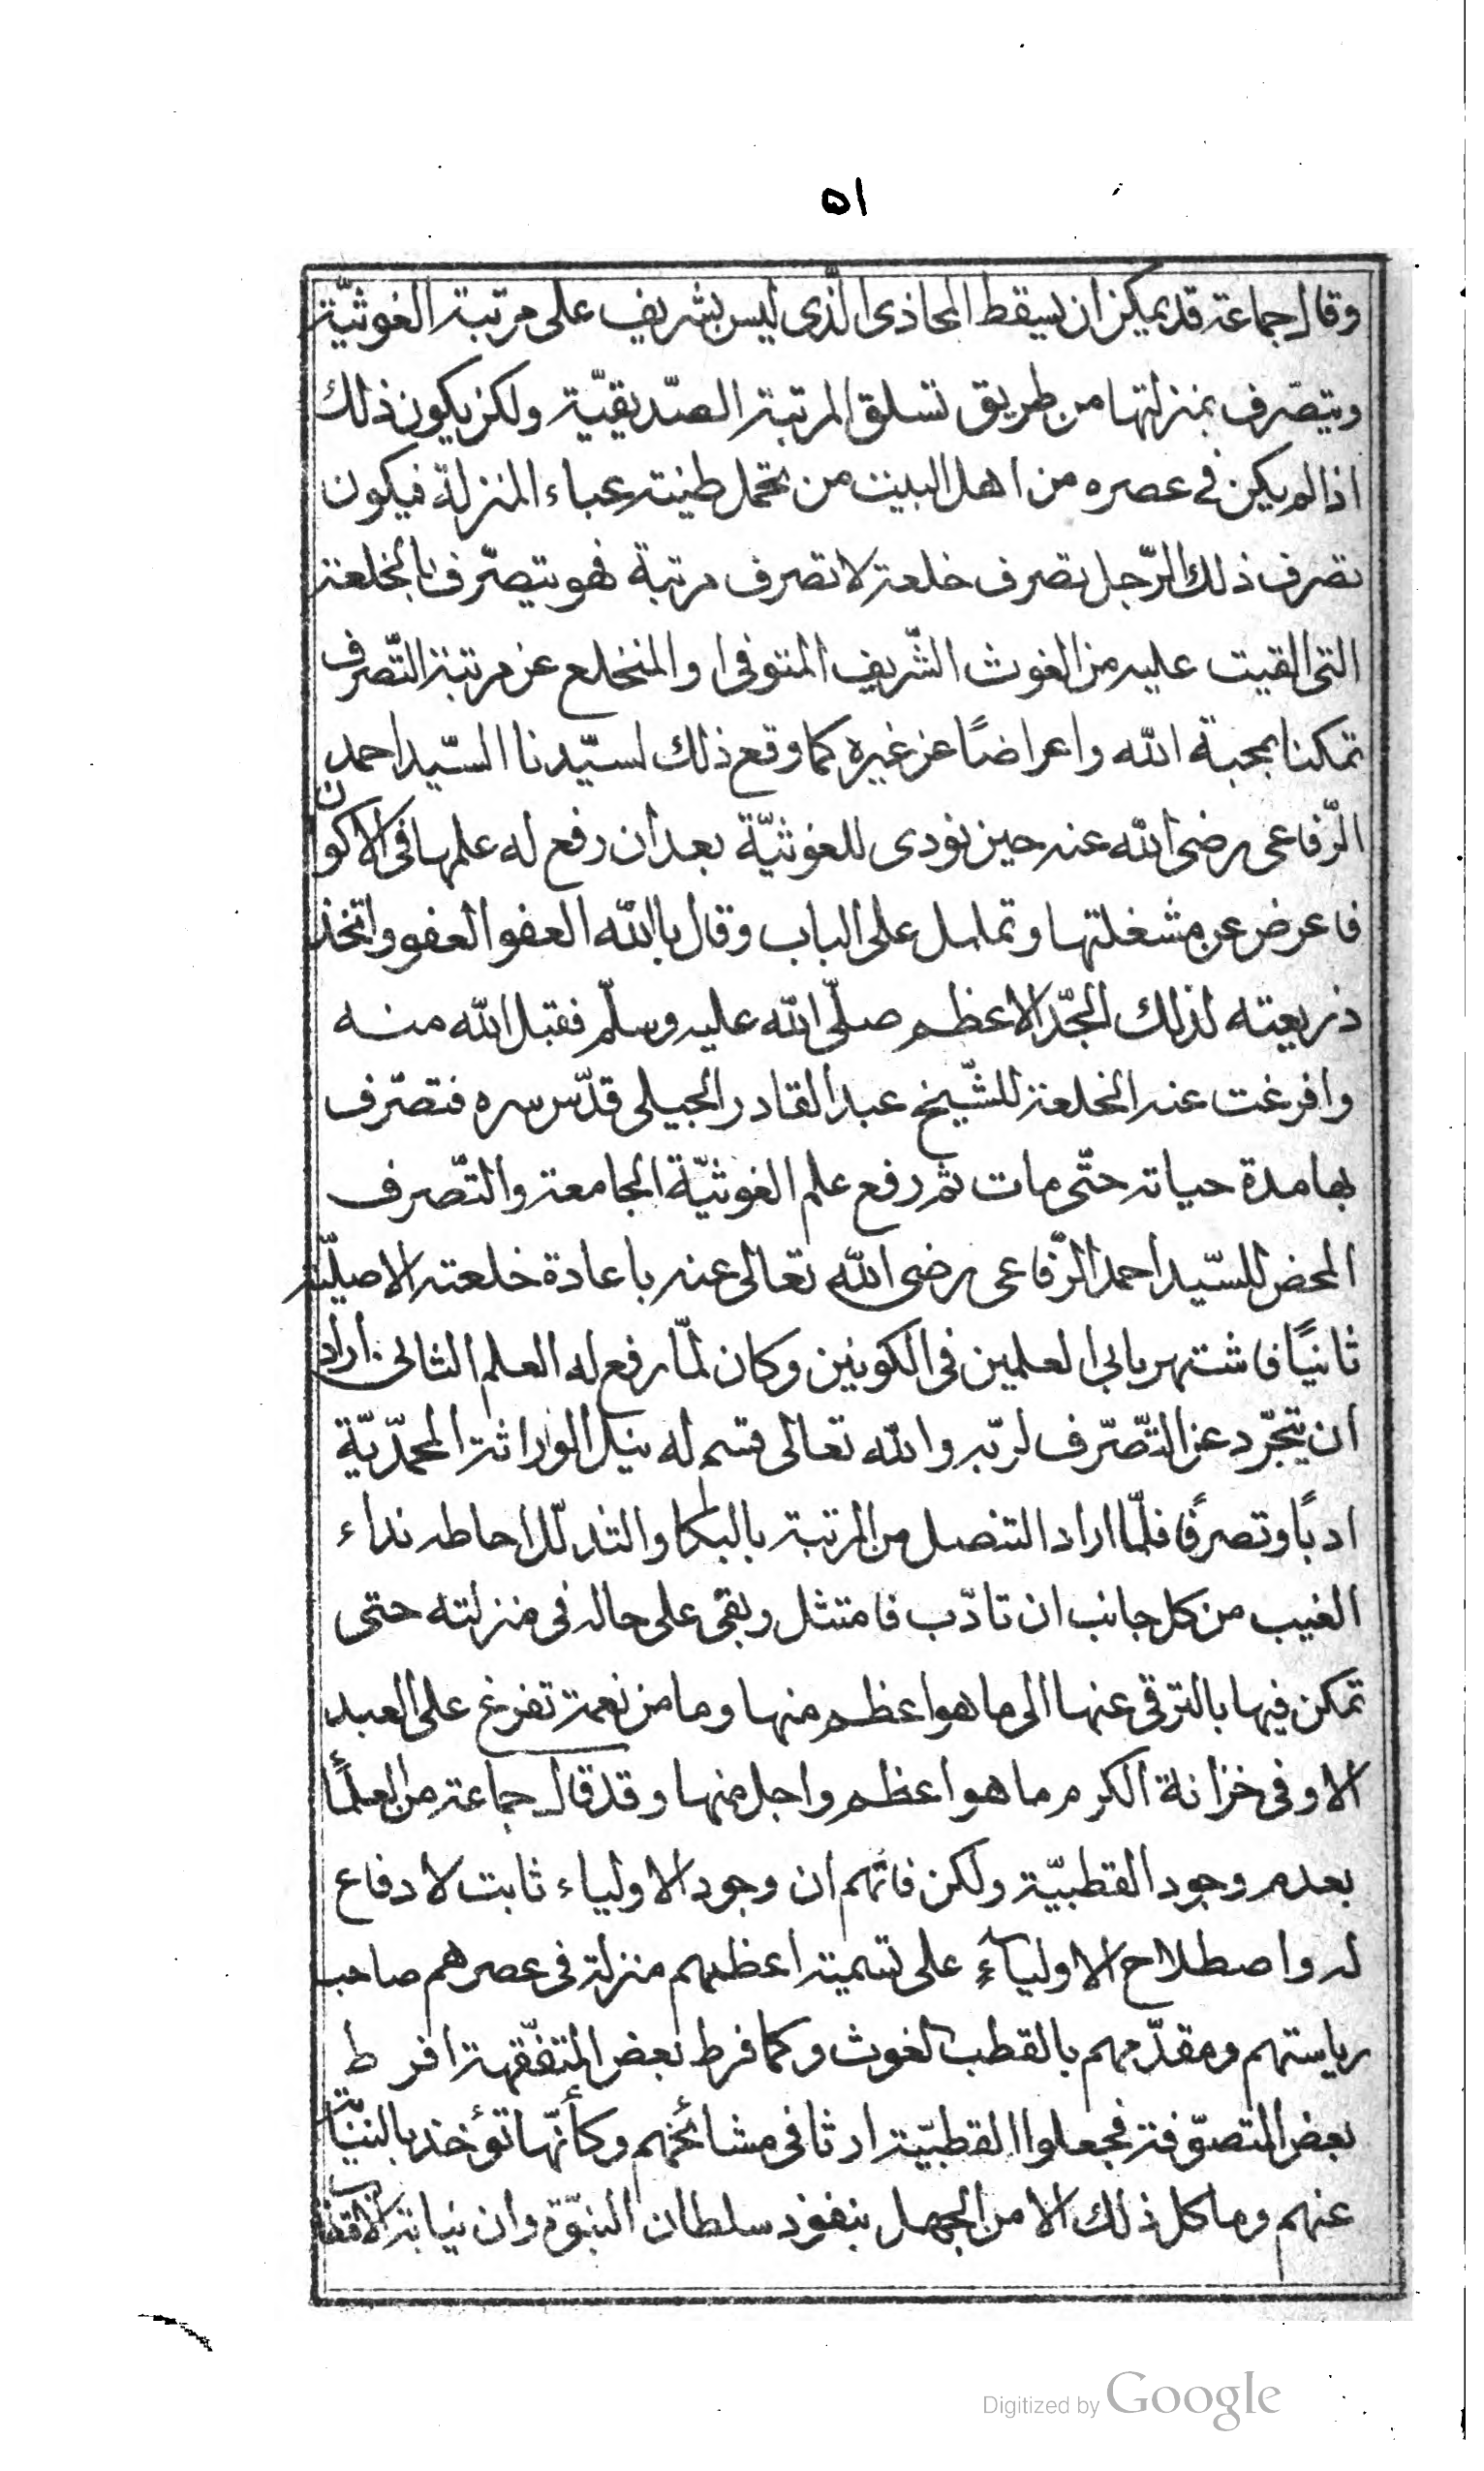 ٥١
وقال جماعة قد يمكن ان يسقط المحاذى الّذى ليس بشريف على مرتبة الغوثيّة
ويتصّرف بمنزلتها من طريق تسلق المرتبة الصّديقيّة ولكن يكون ذلك
اذا لم يكن فى عصره من اهل البيت من تحمل طينته عباء المنزلة فيكون
تصرف ذلك الرّجل تصرف خلعة لا تصرف مرتبة فهو يتصّرف بالخلعة
التى القيت عليه من الغوث الشّريف المتوفى او المنخلع عن مرتبة التّصرف
تمكنا بمحبة الله واعراضًا عن غيره كما وقع ذلك لسيّدنا السّيد احمد
الرّفاعى رضى الله عنه حين نودى للغوثيّة بعد ان رفع له علمها فى الاكوان
فاعرض عن مشغلتها وتململ على الباب وقال يا الله العفو العفو واتخذ
ذريعته لذلك الجّد الاعظم صلّى الله عليه وسلّم فقبل الله منه
وافرغت عنه الخلعة للشّيخ عبد القادر الجيلى قدّس سره فتصّرف
بها مدة حياته حتّى مات ثم رفع علم الغوثيّة الجامعة والتّصرف
المحض للسّيد احمد الرّفاعى رضى الله تعالى عنه باعادة خلعته الاصليّة
ثانيًا فاشتهر بابى العلمين فى الكونين وكان لمّا رفع له العلم الثانى اراد
ان يتجّرد عن التّصّرف لربّه والله تعالى قسم له بنيل الوراثة المحمّديّة
ادبًا وتصرفًا فلمّا اراد التنصل من المرتبة بالبكا والتذلّل احاطه نداء
الغيب من كل جانب ان تادّب فامتثل وبقى على حاله فى منزلته حتى
تمكن فيها بالترقى عنها الى ما هو اعظم منها وما من نعمة تفرغ على العبد
الا وفى خزانة الكرم ما هو اعظم واجل منها وقد قال جماعة من العلمأ
بعدم وجود القطبيّة ولكن فاتهم ان وجود الاولياء ثابت لا دفاع
له واصطلاح الاولياء على تسمية اعظمهم منزلة فى عصرهم صاحب
رياستهم ومقدّمهم بالقطب الغوث وكما فرط بعض المتفّقهة افرط
بعض المتصوّفة فجعلوا القطبيّة ارثا فى مشائخهم وكأنّها تؤخذ بالنيّابة
عنهم وما كل ذلك الا من الجهل بنفوذ سلطان النبوّة وان نيابة
Digitized by Google